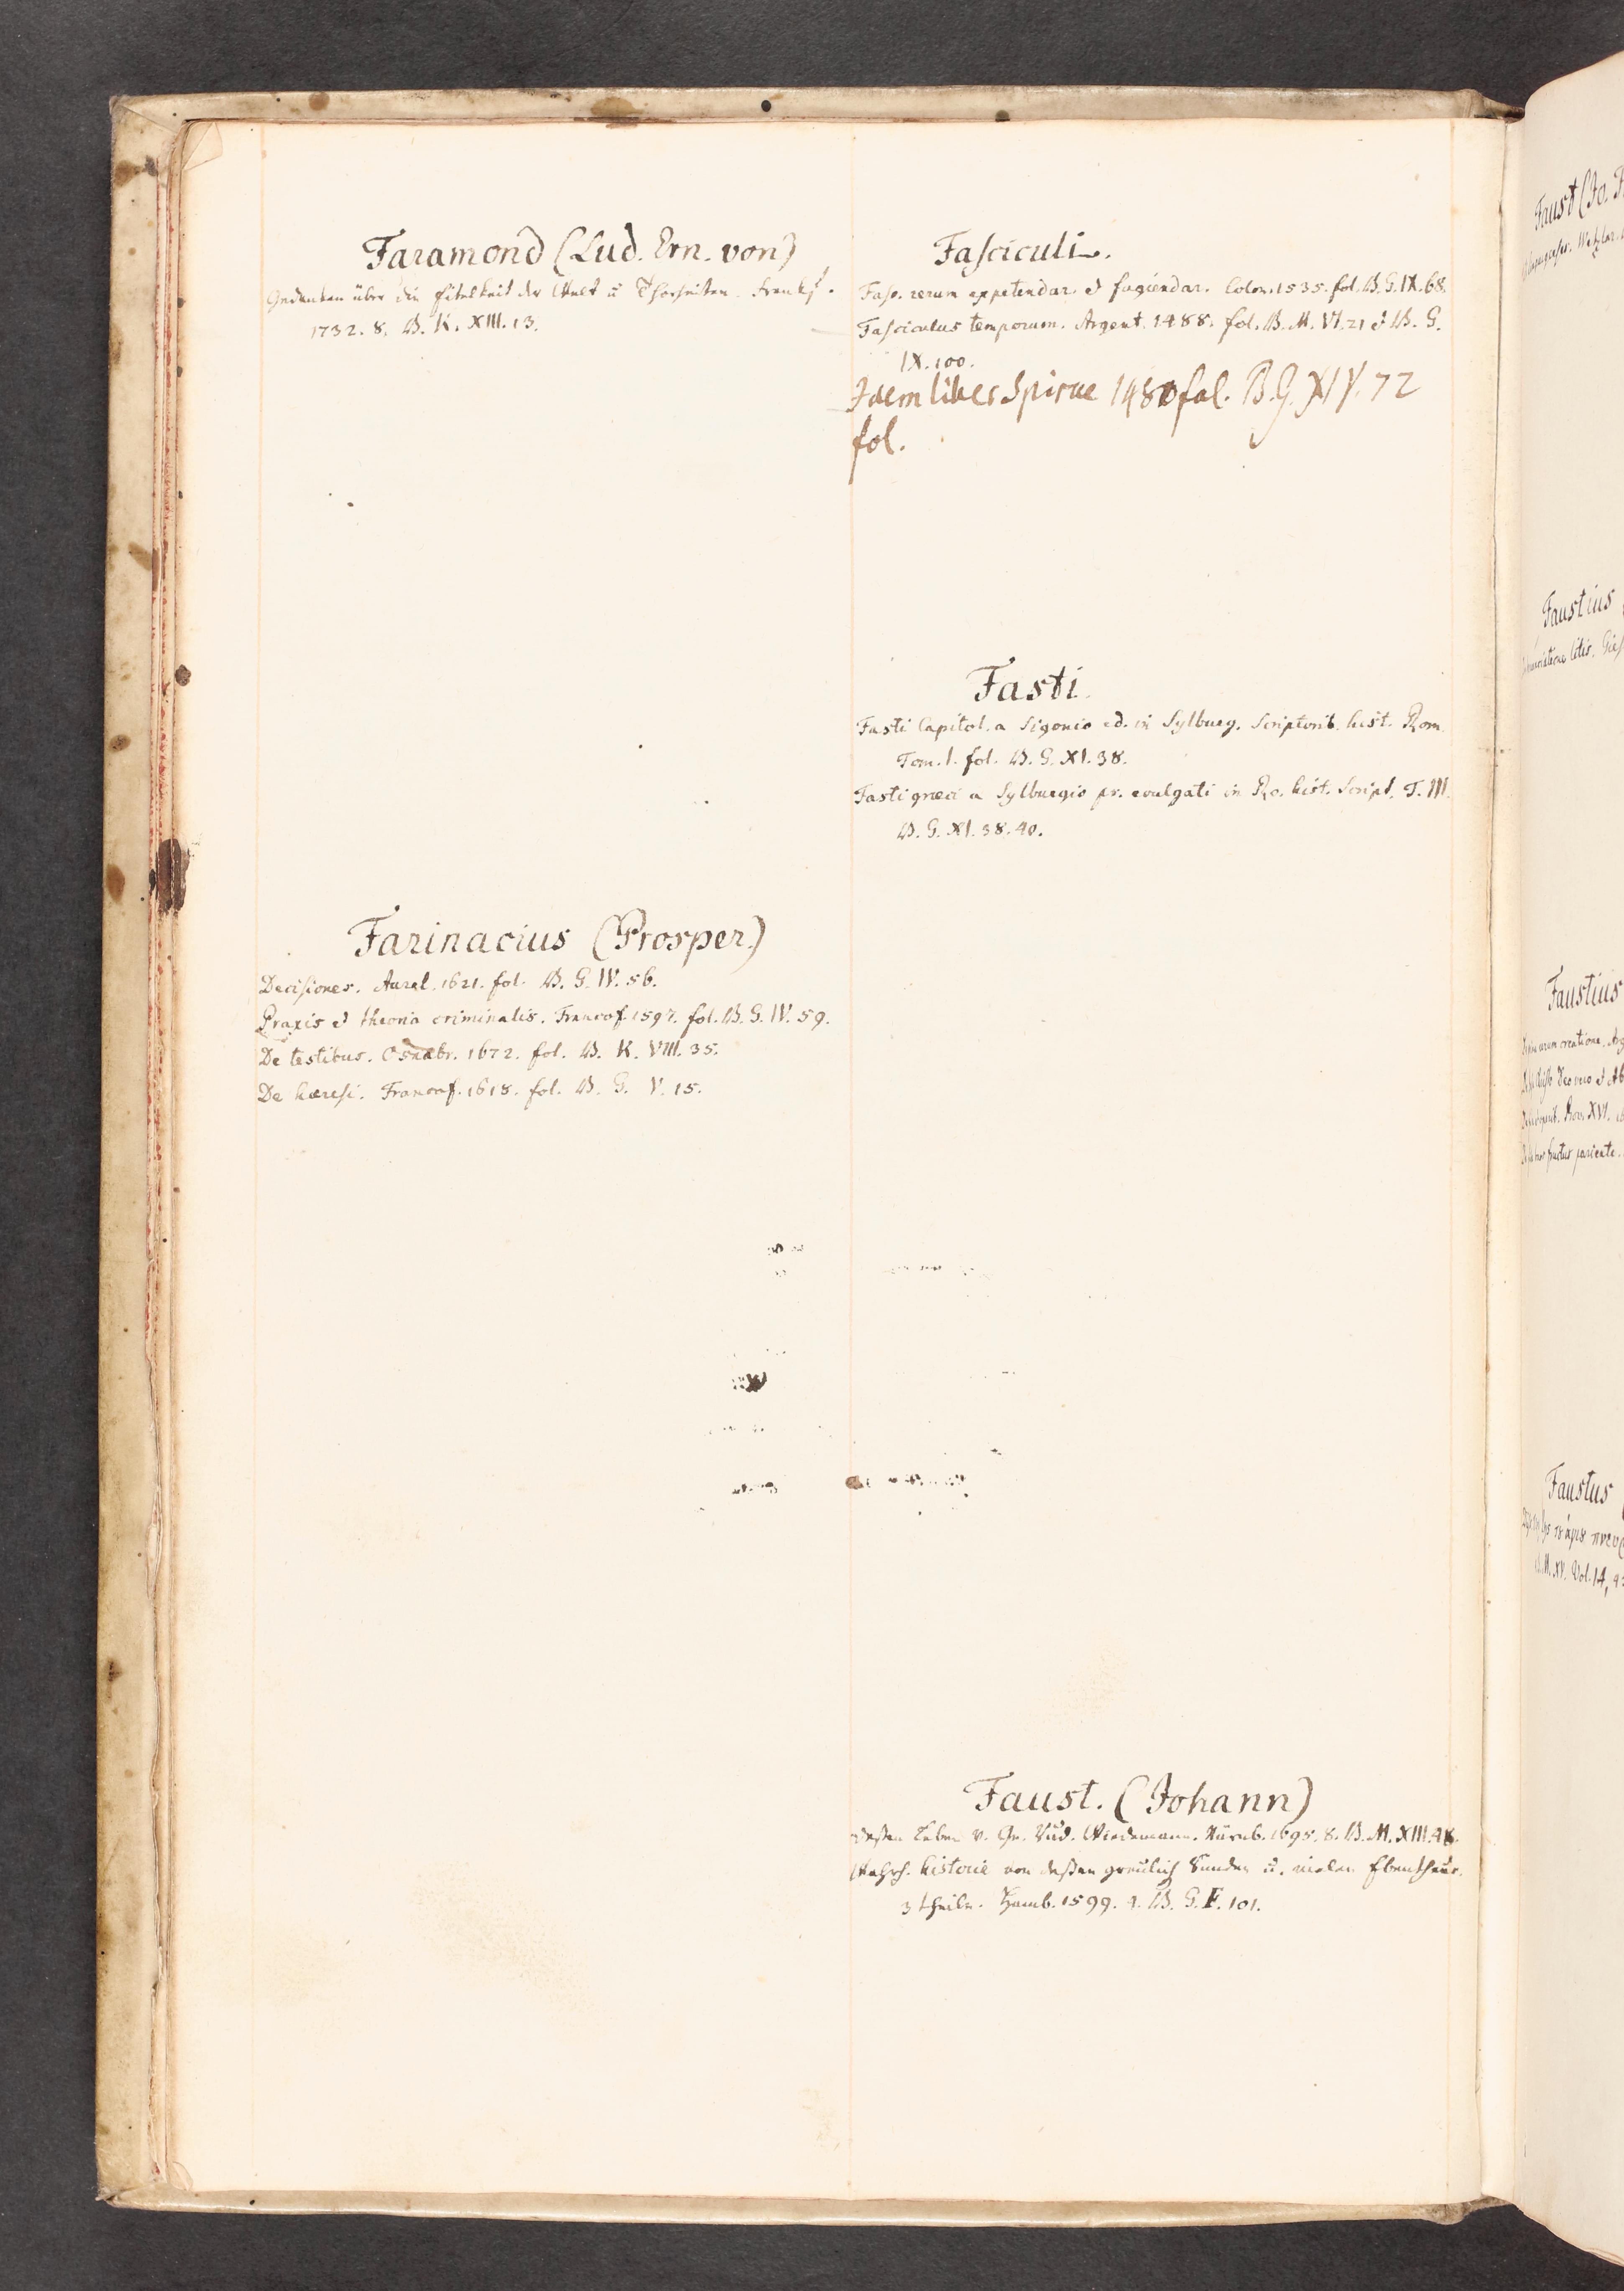 Faramond (Lud. Ern. von)
Gedanken über die Eitelkeit der Welt u Thorheiten. Frankf.
1732. 8. B. K. XIII. 13.
Farinacius (Prosper.)
Decisiones. Aurel. 1621. fol. B. G. IV. 56.
Praxis et theoria criminalis. Francof. 1597. fol. B. G. IV. 59.
De testibus. Osnabr. 1672. fol. B. K. VIII. 35.
De hæresi. Francof. 1618. fol. B. G. V. 15.
Fasciculi.
Fasc. rerum expetendar. et fugiendar. Colon. 1535. fol. B. G. IX. 68.
Fasciculus temporum. Argent. 1488. fol. B. M. VI. 21 et B. G.
IX. 100.
Idem liber Spirae 1480 fol. B. G. XIV. 72
fol.
Fasti.
Fasti Capitol. a Sigonio ed. in Sylburg. Scriptorib. hist. Rom.
Tom. I. fol. B. G. XI. 38.
Fasti græci a Sylburgio pr. evulgati in Ro. hist. Script. T. III.
B. G. XI. 38. 40.
Faust. (Johann)
deßen Leben v. Ge. Rud. Wiedemann. Nürnb. 1695. 8. B. M. XIII. 48.
Wahrh. historie von deßen greulich Sunden u. vielen Ebentheur.
3 theile. Hamb. 1599. 4. B. G. F. 101.
Faust (Jo. F
Wetzlar.
Faustius
litis. Gieß
Faustius
creatione. Arg
Deo uno et
XVI.
fructus pariente.
Faustus
B. M. XV. Vol. 14,